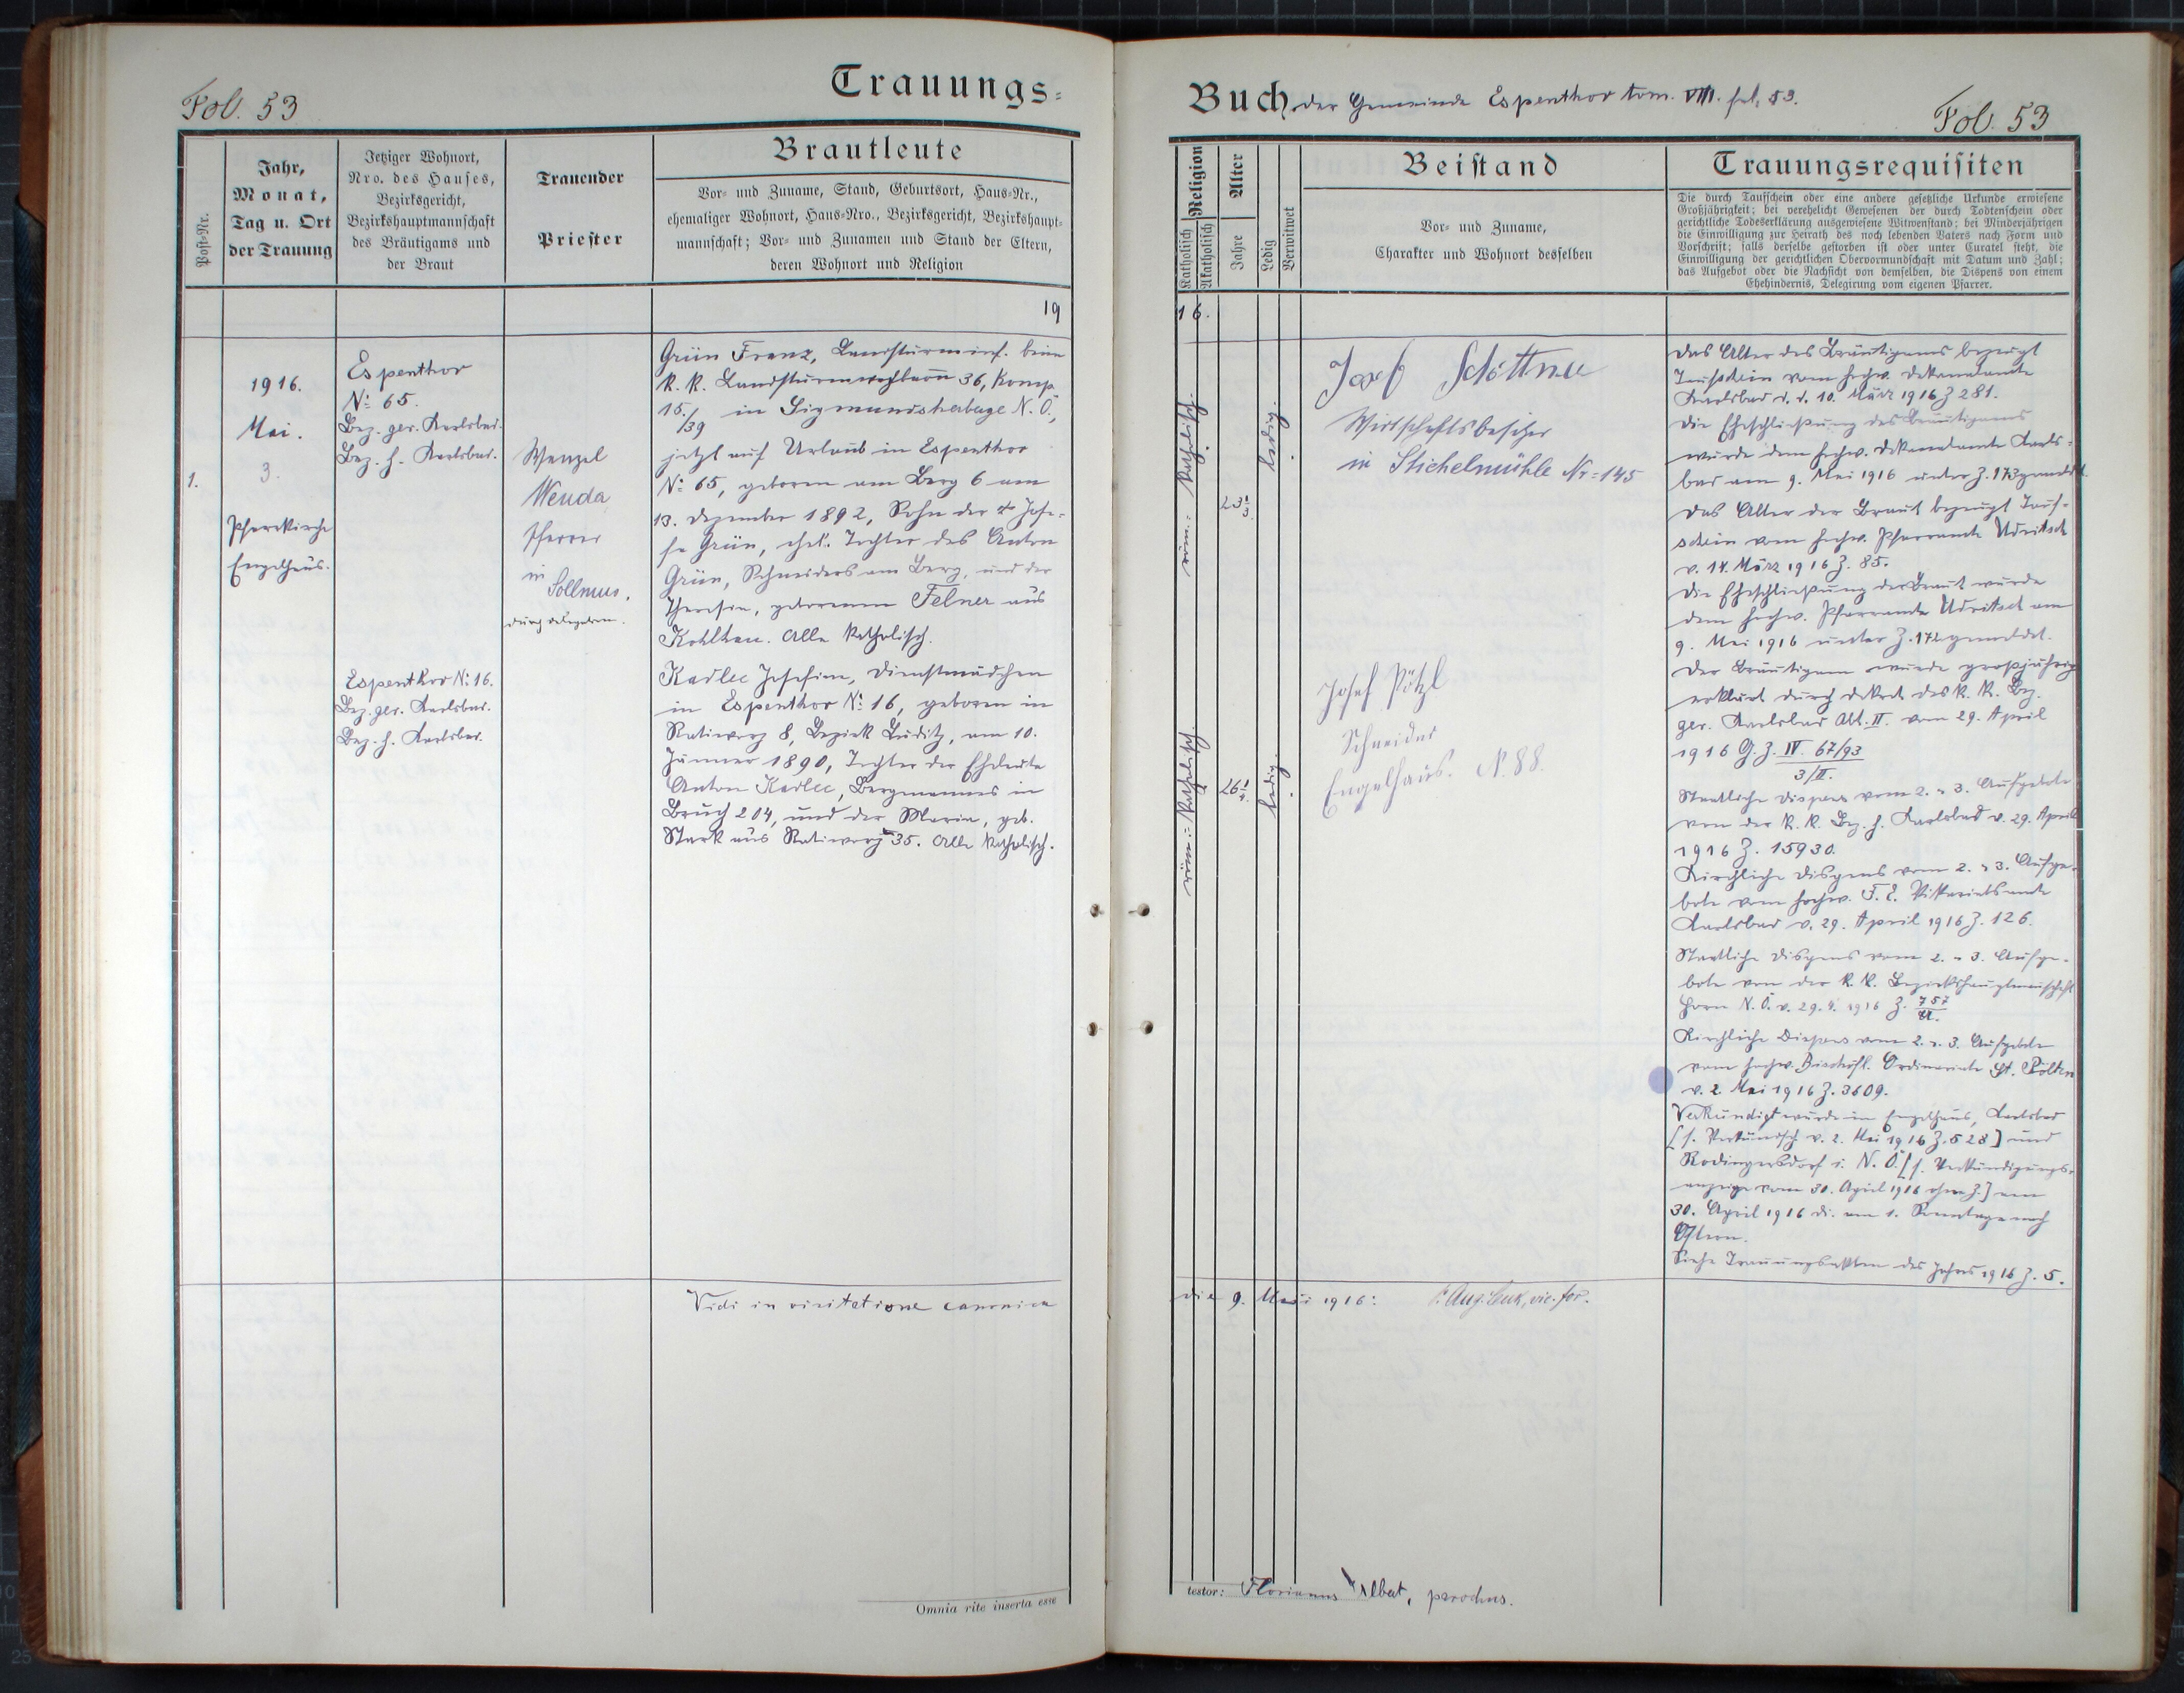 Fol. 53
Trauungs-
Post-Nr.
Jahr,
Monat,
Tag u. Ort
der Trauung
Jetziger Wohnort,
Nro. des Hauses,
Bezirksgericht,
Bezirkshauptmannschaft
des Bräutigams und
der Braut
Trauender
Priester
Brautleute
Vor- und Zuname, Stand, Geburtsort, Haus-Nr.,
ehemaliger Wohnort, Haus-Nro., Bezirksgericht, Bezirkshaupt-
mannschaft; Vor- und Zunamen und Stand der Eltern,
deren Wohnort und Religion
19
1.
1916.
Mai.
3.
Pfarrkirche
Engelhaus.
Espenthor
No 65.
Bez. ger. Karlsbad.
Bez. h. Karlsbad.
Espenthor No 16.
Bez. ger. Karlsbad.
Bez. h. Karlsbad.
Wenzel
Wenda
Pfarrer
in
Sollmus.
Grün Franz, Landsturminf. beim
k. k. Landsturm 36, Komp.
15./39 in Sigmundsherberg N. Ö.,
jetzt auf Urlaub in Espenthor
No 65, geboren am Berg 6 am
13. Dezember 1892, Sohn der Jose-
fa Grün, ehel. Tochter des Anton
Grün, Schneiders am Berg, und der
Theresia, geborenen Felner aus
Kohlhau. Alle katholisch.
Kadlec Josefine, Dienstmädchen
in Espenthor No 16, geboren in
Ratiworz 8, Bezirk Luditz, am 10.
Jänner 1890, Tochter der Eheleute
Anton Kadlec, Bergmannes in
Bruch 204, und der Maria, geb.
Stark aus Ratiworz 35. Alle katholisch.
Vidi in visitatione canonica
Omnia rite inserta esse
Buch der Gemeinde Espenthor tom. VIII. fol. 53.
Fol. 53
Religion
Katholisch
Akatholisch
Alter
Jahre
Ledig
Verwitwet
Beistand
Vor- und Zuname,
Charakter und Wohnort desselben
Trauungsrequisiten
Die durch Taufschein oder eine andere gesetzliche Urkunde erwiesene
Großjährigkeit; bei verehelicht Gewesenen der durch Todtenschein oder
gerichtliche Todeserklärung ausgewiesene Witwenstand; bei Minderjährigen
die Einwilligung zur Heirath des noch lebenden Vaters nach Form und
Vorschrift; falls derselbe gestorben ist oder unter Curatel steht, die
Einwilligung der gerichtlichen Obervormundschaft mit Datum und Zahl;
das Aufgebot oder die Nachsicht von demselben, die Dispens von einem
Ehehindernis, Delegirung vom eigenen Pfarrer.
16.
röm. katholisch.
23 1/3.
ledig.
röm. katholisch.
26 1/4.
ledig.
Josef Schöttner
Wirtschaftsbesitzer
in Stichelmühle Nr. 145
Josef Pötzl
Schneider
Engelhaus. N. 88.
Das Alter des Bräutigams bezeugt
Taufschein vom hochw. Dekanalamte
Karlsbad d. d. 10. März 1916 Z 281.
Die Eheschließung des Bräutigams
wurde dem hochw. Dekanalamte Karls-
bad am 9. Mai 1916 unter Z. 173 gemeldet.
Das Alter der Braut bezeugt Tauf-
schein vom hochw. Pfarramte Udritsch
v. 14. März 1916 Z. 85.
Die Eheschließung der Braut wurde
dem hochw. Pfarramte Udritsch am
9. Mai 1916 unter Z. 172 gemeldet.
Der Bräutigam wurde großjährig
erklärt durch Dekret des k. k. Bez.
ger. Karlsbad Abt. II. vom 29. April
1916 G. Z. IV. 67/93
3/II.
Staatliche Dispens vom 2. u. 3. Aufgebote
von der k. k. Bez. h. Karlsbad v. 29. April
1916 Z. 15930.
Kirchliche Dispens vom 2. u. 3. Aufge-
bote vom hochw. F. E. Vikariatsamte
Karlsbad v. 29. April 1916 Z. 126.
Staatliche Dispens vom 2. u. 3. Aufge-
bote von der k. k. Bezirkshauptmannschaft
Horn N. Ö. v. 29. 4. 1916 Z. 757
Kirchliche Dispens vom 2. u. 3. Aufgebote
vom hochw. Bischöfl. Ordinariate St. Pölten
v. 2. Mai 1916 Z. 3609.
Verkündigt wurde in Engelhaus, Karlsbad
[s. Verkündsch. v. 2. Mai 1916 Z. 528] und
Rodingersdorf i. N. Ö. [s. Verkündigungs-
anzeige vom 30. April 1916 ohne Z.] am
30. April 1916 di. am 1. Sonntage nach
Ostern.
Siehe Trauungsakten des Jahres 1916 Z. 5.
die 9. Maii 1916: vic. for.
testor: Florianus Albert, parochus.